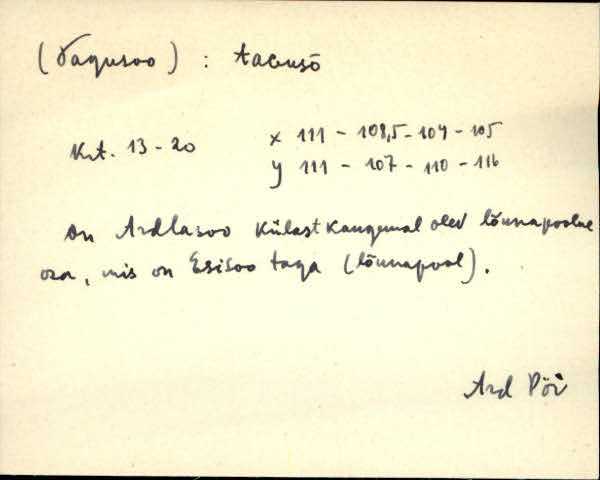 (Tagusoo) : taGusō
Krt. 13 - 20 x 111 - 108,5 - 109 - 105
y 111 - 107 - 110 - 116
On Ardlasoo külast kaugemal olev lõunapoolne
osa, mis on Esisoo taga (lõunapool).
Ard Pöi